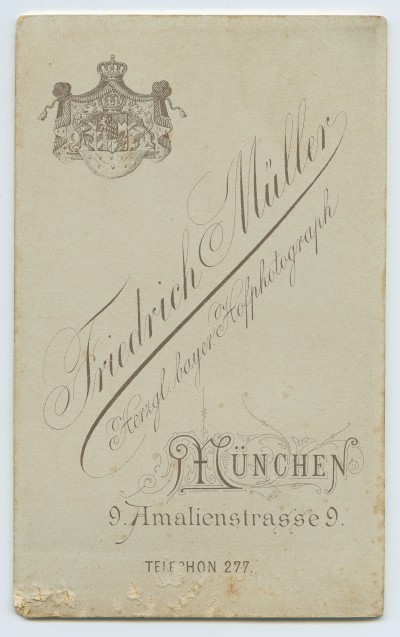 Friedrich Müller
Herzgl. bayer. Hofphotograph
MÜNCHEN
9. Amalienstrasse 9.
TELEPHON 277.